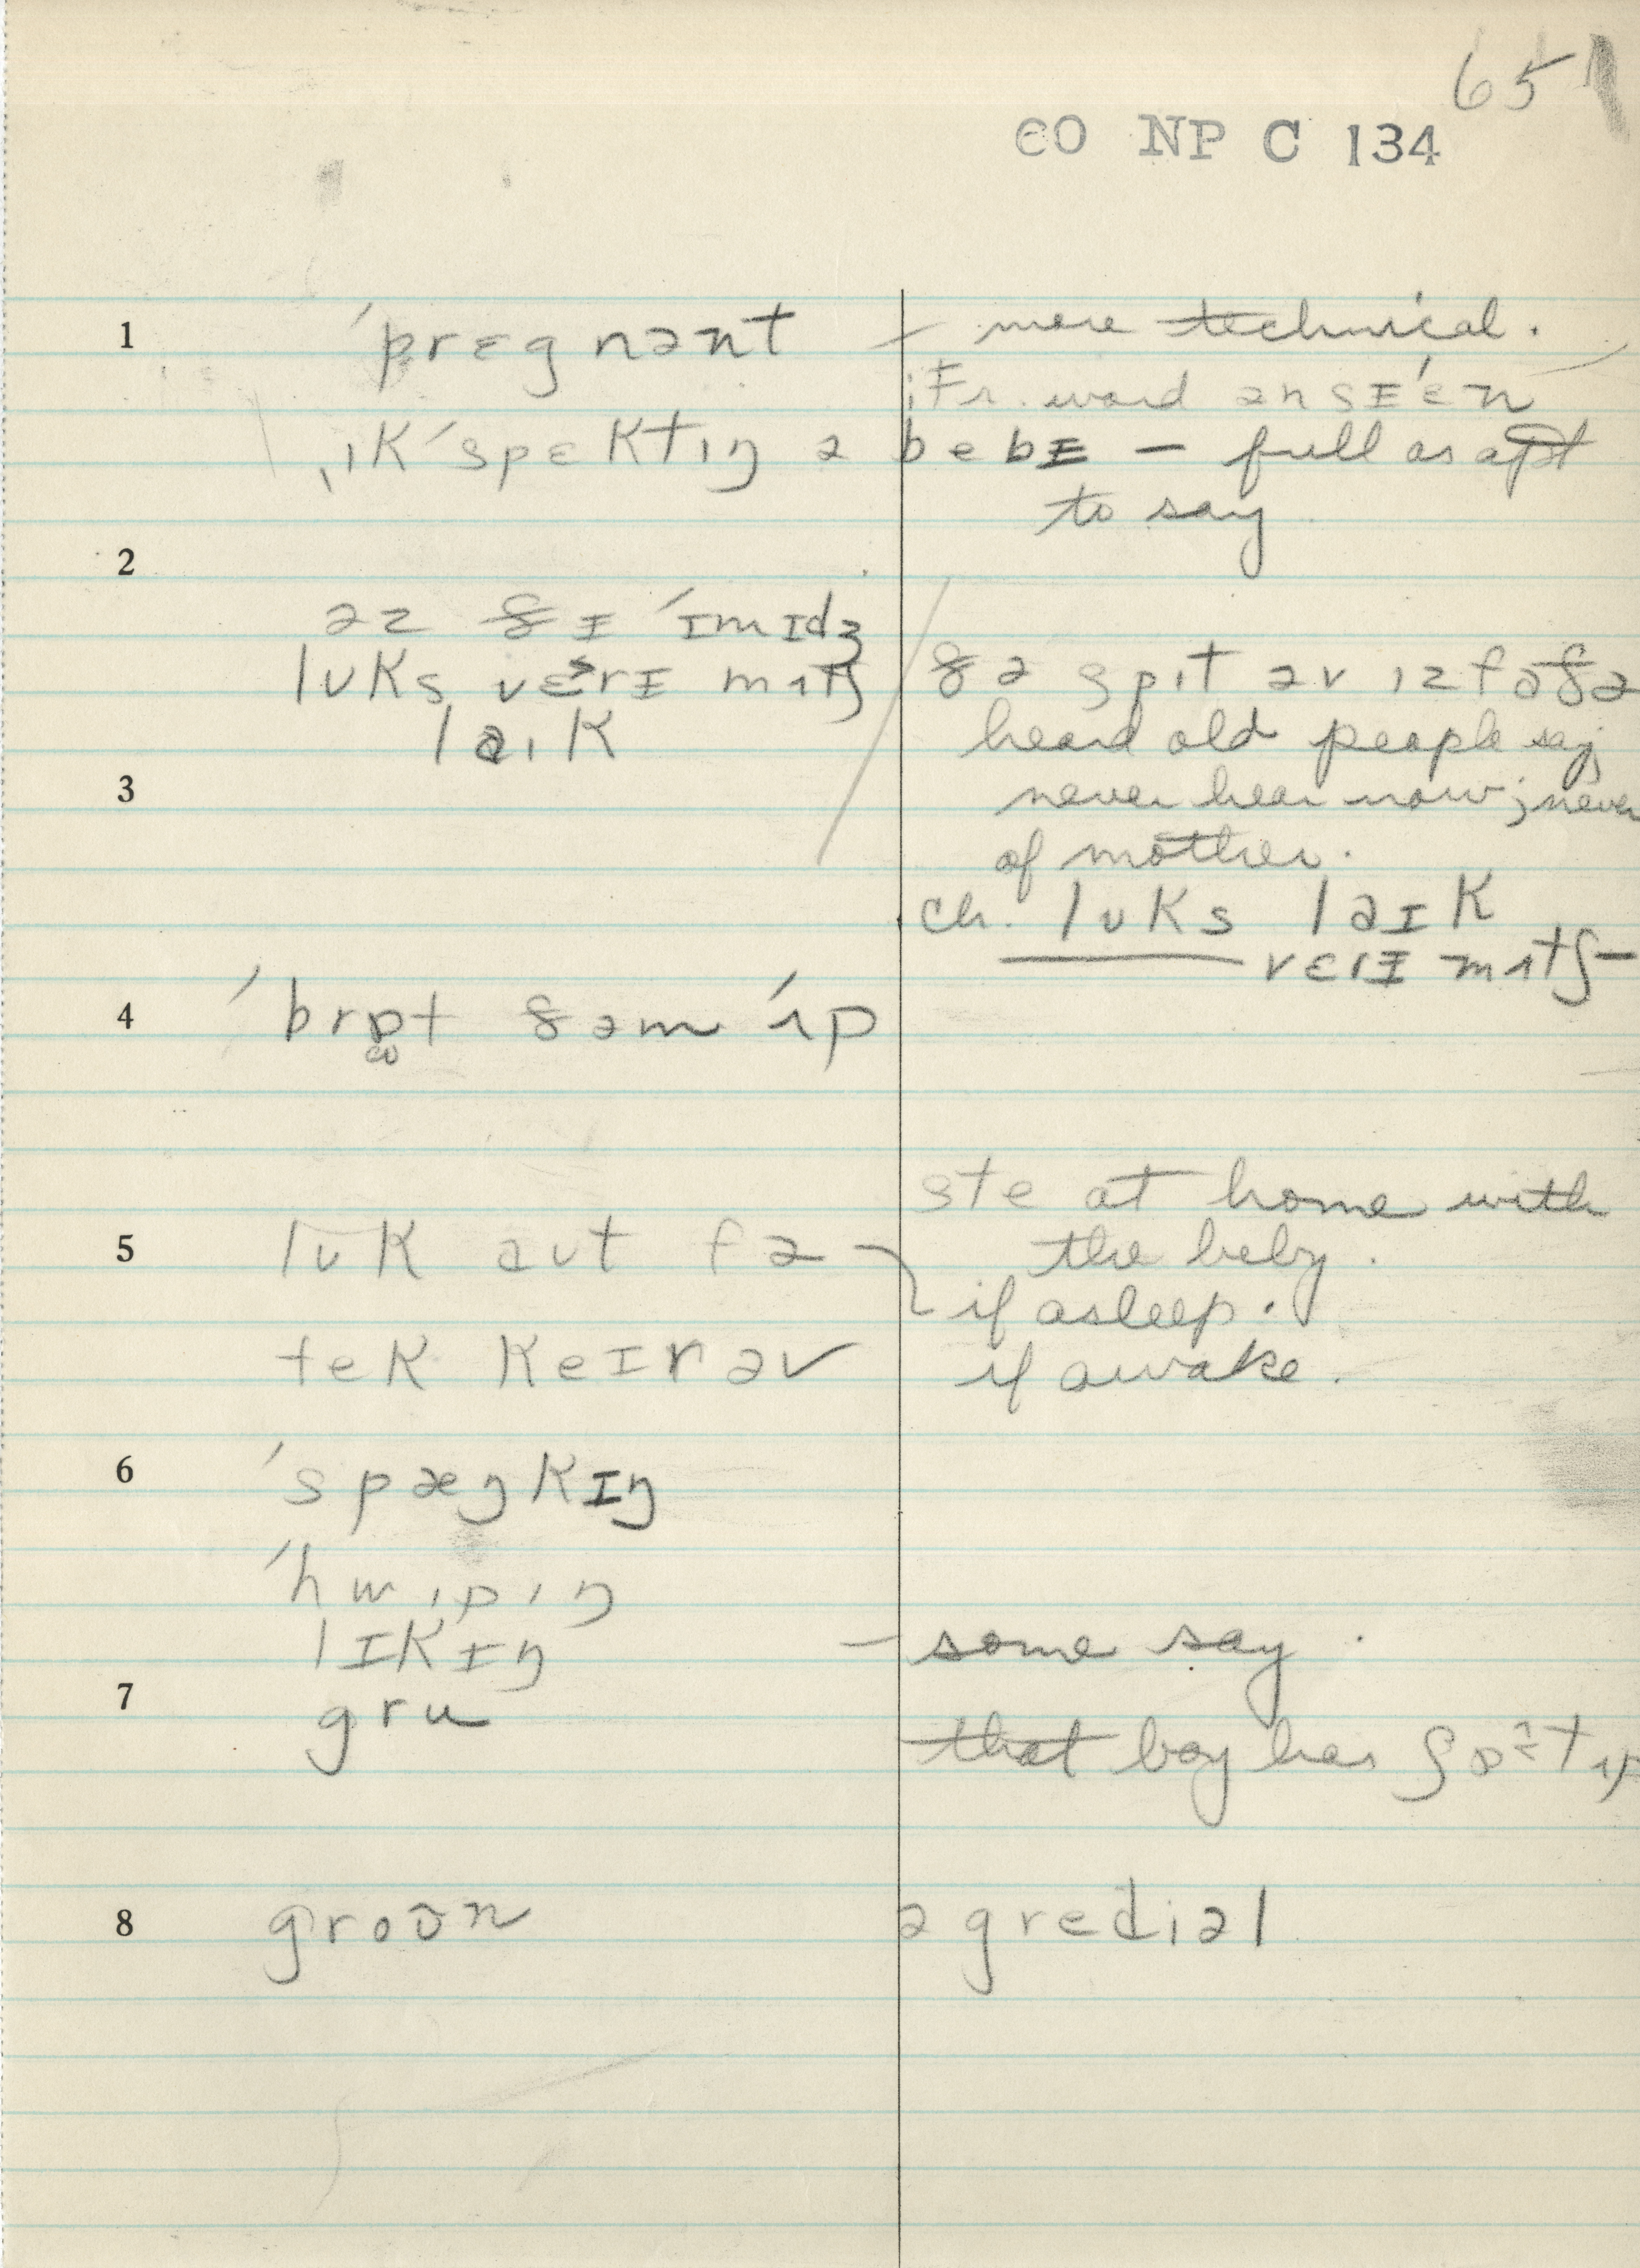 65
CO NP C 134
1 ˈprɛgnənt – more technical.
; Fr. word
ˌɪkˈspɛktɪŋ ə bebɪ – full as apt
to say
2
əz ðɪ ˈɪmɪdʒ
lʊks vɛrɪ mʌtʃ ðə spɪt əv ɪz fɑðə
laɪk heard old people say,
3 never hear now; never
of mother.
ch. lʊks laɪk
vɛrɪ mʌtʃ –
4 ˈbrɒt ðəm ˈʌp
ste at home with
5 lʊk aʊt fə the baby.
if asleep.
tek keɪr əv if awake.
6 ˈspæŋkɪŋ
ˈhwɪpɪŋ
lɪkɪŋ – some say.
7 gru
that boy has ʃɒt ʌp
8 groʊn ə gredɪəl